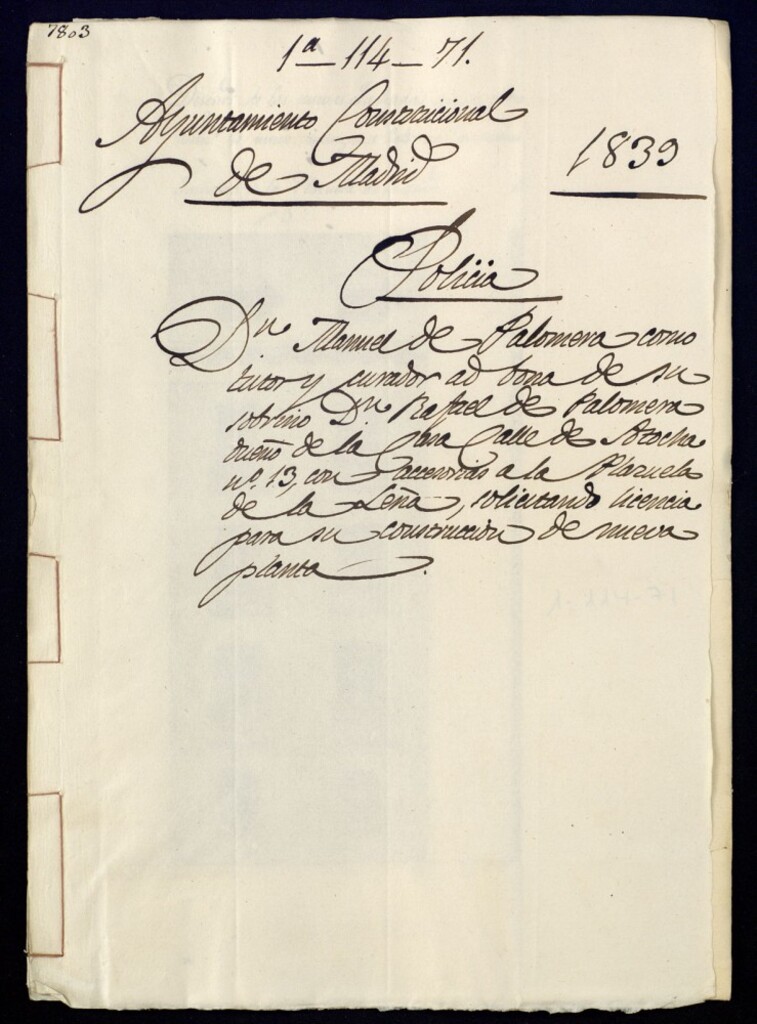 7803
1ª—114—71.
Ayuntamiento Constitucional
de Madrid
1839
Policia
Dn. Manuel de Palomera como
tutor y curador ad bona de su
sobrino Dn. Rafael de Palomera
dueño de la Casa Calle de Atocha
nº. 13, con accesorias a la Plazuela
de la Leña, solicitando licencia
para su construccion de nueva
planta.